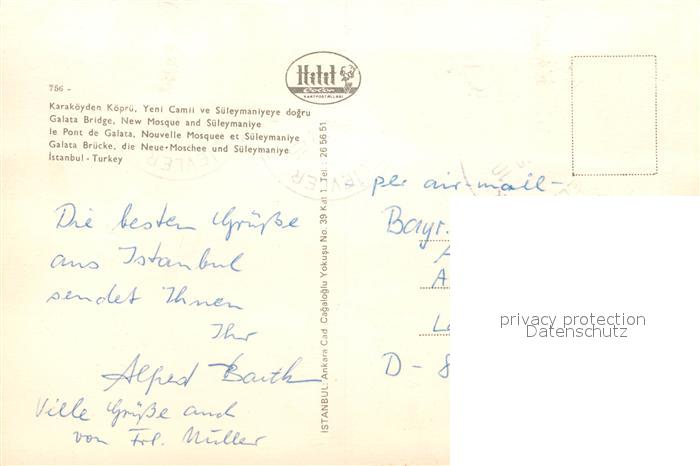 756 -
Hitit
Color
KARTPOSTALLARI
Karaköyden Köprü, Yeni Camii ve Süleymaniyeye doğru
Galata Bridge, New Mosque and Süleymaniye
le Pont de Galata, Nouvelle Mosquee et Süleymaniye
Galata Brücke, die Neue-Moschee und Süleymaniye
İstanbul - Turkey
İSTANBUL: Ankara Cad. Cağaloğlu Yokuşu No. 39 Kat 1 Tel : 26 56 51
Die besten Grüße
aus Istanbul
sendet Ihnen
Ihr
Alfred Barth
Ville Grüße auch
von Frl. Müller
per air-mail-
Bayr.
A
A
L
D - 8
privacy protection
Datenschutz